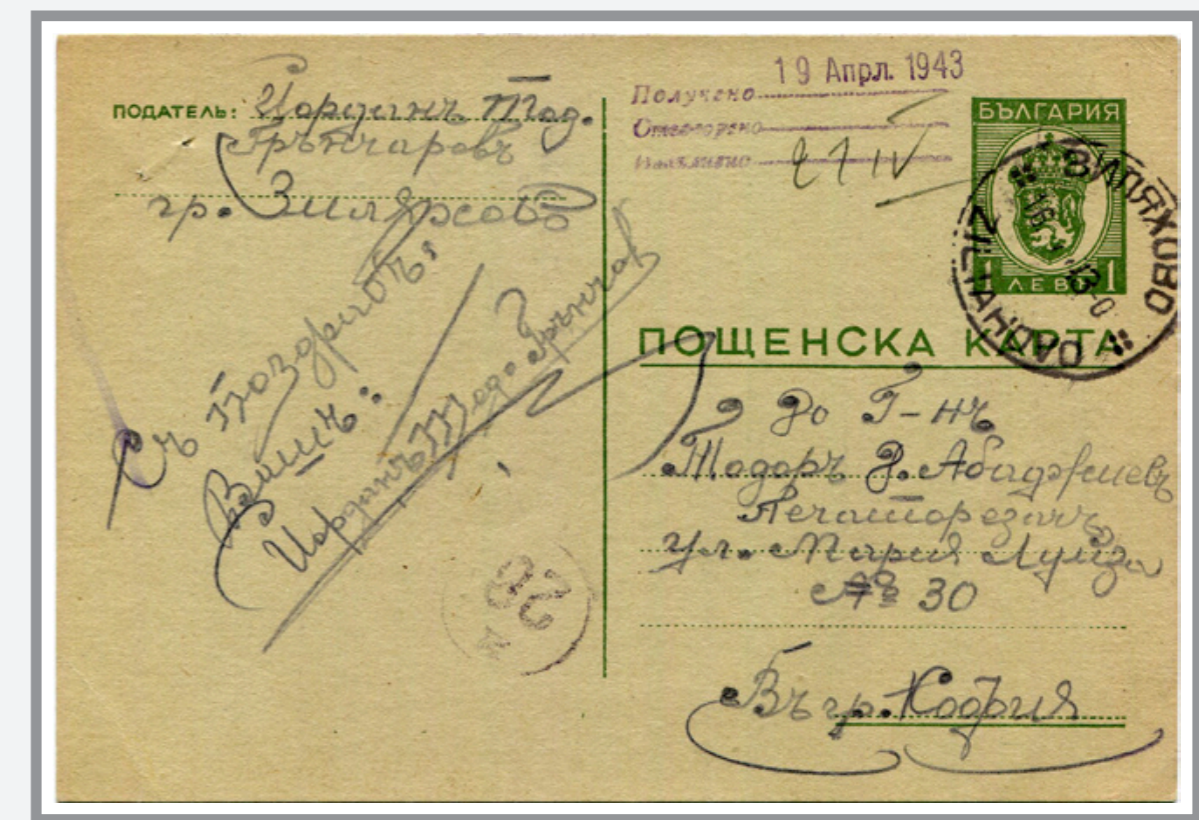 ПОДАТЕЛЬ: Йорданъ Тод.
Грънчаровъ
гр. Зиляхово
Съ поздравъ:
Вашъ:
Йорданъ Тодо Грънчаров
19 Апрл. 1943
Получено
Отговорено
21 IV
БЪЛГАРИЯ
1 ЛЕВЪ 1
ЗИЛЯХОВО
ZILIAHOVO
ПОЩЕНСКА КАРТА
До Г-нъ
Тодоръ Д. Абаджиевъ
Печаторезачъ
Ул. Мария Луиза
№ 30
Въ гр. София
20